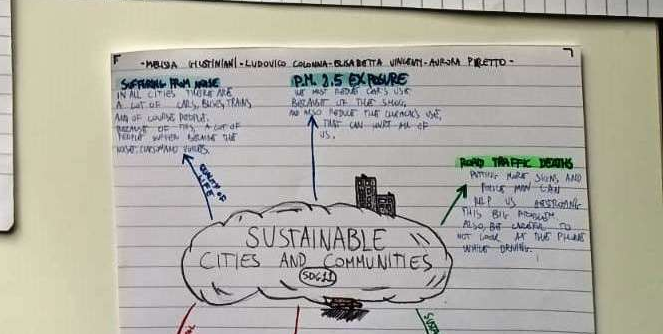 - MELISSA GIUSTINIANI - LUDOVICO COLONNA - ELISABETTA VINCENTI - AURORA PIRETTO -
SUFFERING FROM NOISE
IN ALL CITIES THERE ARE
A LOT OF CARS, BUSES, TRAINS,
AND OF COURSE PEOPLE.
BECAUSE OF THIS, A LOT OF
PEOPLE SUFFER BECAUSE THE
NOISE,
P.M. 2.5 EXPOSURE
WE MUST REDUCE CAR'S USE
BECAUSE OF THE SMOG,
AND ALSO REDUCE THE USE,
THAT CAN HURT ALL OF
US.
ROAD TRAFFIC DEATHS
PUTTING MORE SIGNS AND
POLICE MAN CAN
HELP US DESTROYING
THIS BIG PROBLEM.
ALSO, BE CAREFUL TO
NOT LOOK AT THE PHONE
WHILE DRIVING.
QUALITY OF
LIFE
SUSTAINABLE
CITIES AND COMMUNITIES
SDG11